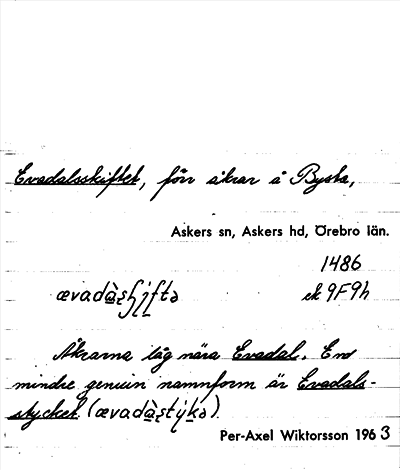 Evadalsskiftet, förr åkrar å Bysta,
Askers sn, Askers hd, Örebro län.
1486
ævadàʂʃɪftə ek 9F9h
Åkrarna låg nära Evadal. En
mindre genuin namnform är Evadals-
stycket (ævadàʂtýkə).
Per-Axel Wiktorsson 1963